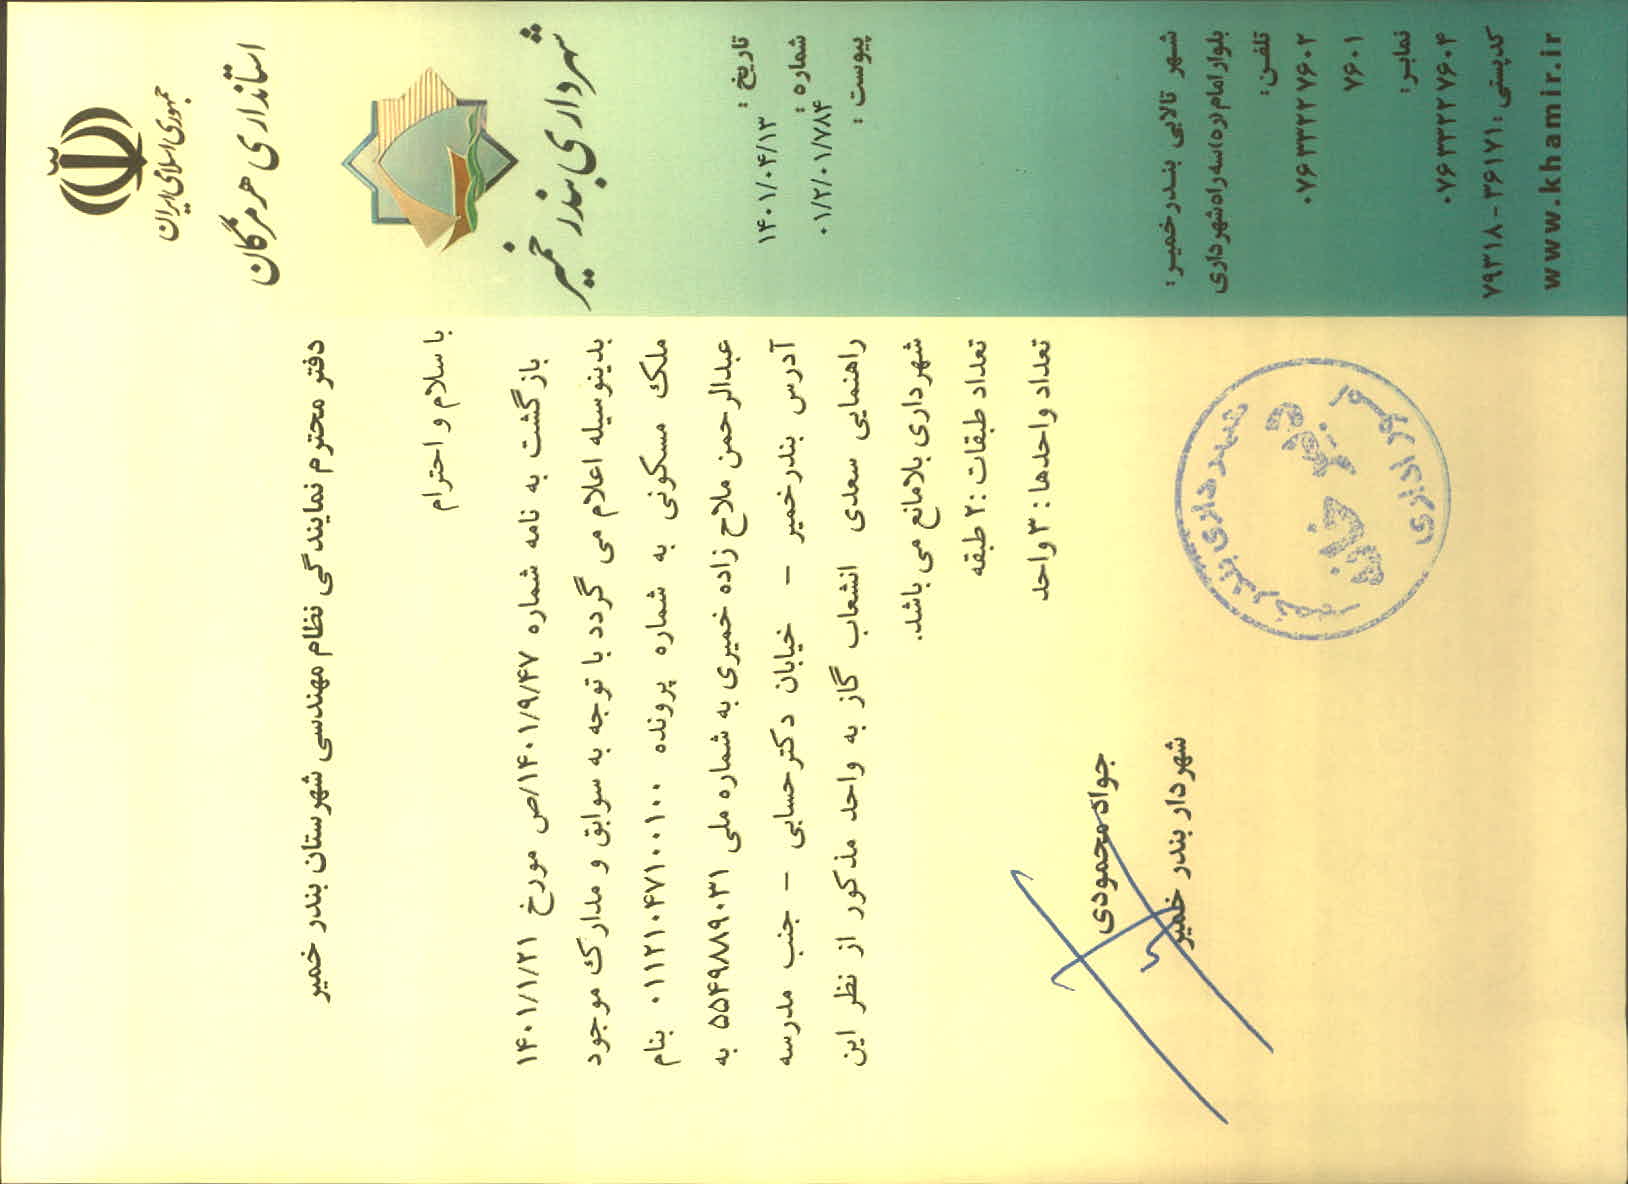 جمهوری اسلامی ایران
استانداری هرمزگان
شهرداری بندر خمیر
تاریخ :
۱۴۰۱/۰۴/۱۳
شماره :
۰۱/۲/۰۱/۷۸۴
پیوست :
دفتر محترم نمایندگی نظام مهندسی شهرستان بندر خمیر
با سلام و احترام
بازگشت به نامه شماره ۱۴۰۱/۹/۴۷/ص مورخ ۱۴۰۱/۱/۲۱
بدینوسیله اعلام می گردد با توجه به سوابق و مدارک موجود
ملک مسکونی به شماره پرونده ۰۱۱۲۱۰۴۷۱۰۰۱۰۰ بنام
عبدالرحمن ملاح زاده خمیری به شماره ملی ۵۵۴۹۸۸۹۰۳۱ به
آدرس بندرخمیر – خیابان دکترحسابی – جنب مدرسه
راهنمایی سعدی انشعاب گاز به واحد مذکور از نظر این
شهرداری بلامانع می باشد.
تعداد طبقات :۲ طبقه
تعداد واحدها : ۳ واحد
جواد محمودی
شهردار بندر خمیر
شهرداری بندر خمیر
دبیرخانه
امور اداری
شهر تالابی بندرخمیر:
بلوار امام(ره)سه راه شهرداری
تلفن:
۰۷۶۳۳۲۲۷۶۰۲
۷۶۰۱
نمابر:
۰۷۶۳۳۲۲۷۶۰۴
کدپستی :۳۶۱۷۱-۷۹۳۱۸
www.khamir.ir